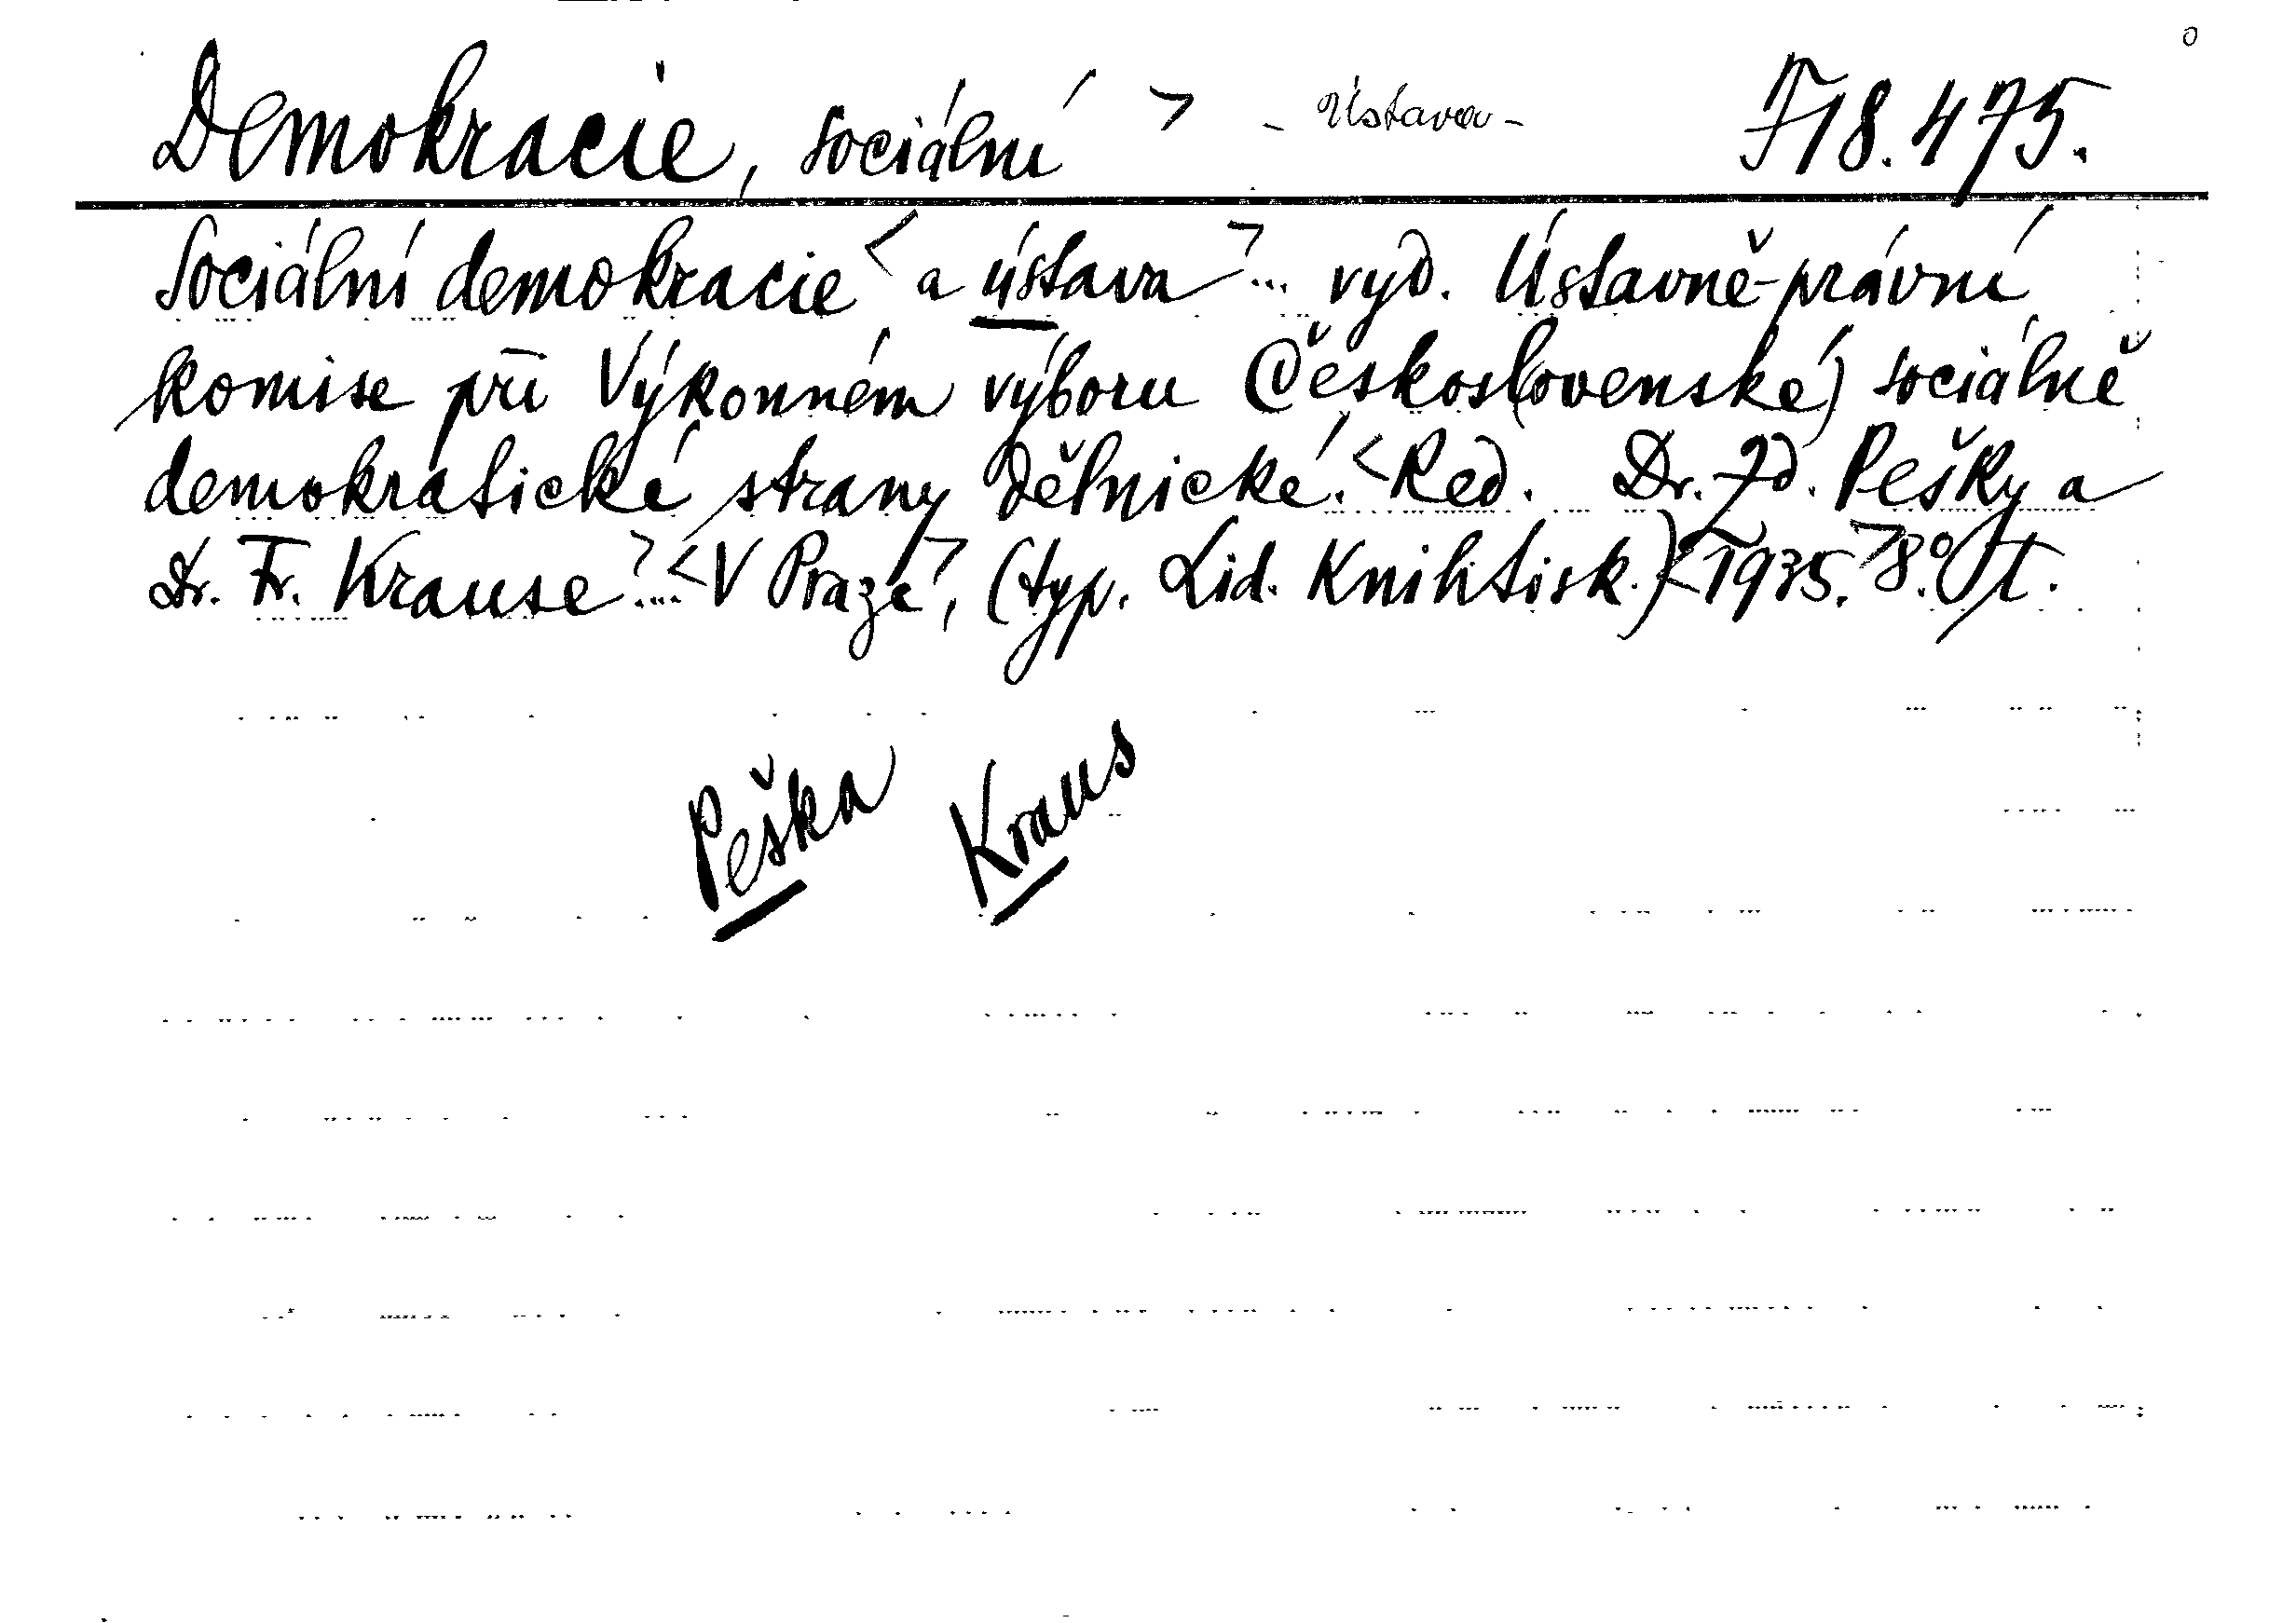 Demokracie, sociální > - Ústava - F 18.475.
Sociální demokracie < a ústava > ... vyd. Ústavně-právní
komise při Výkonném výboru Českos(lovenské) sociálně
demokratické strany dělnické. < Red. Dr. Zd. Pešky a
Dr. Fr. Krause > ... < V Praze >, (typ. Lid. Knihtisk.) < 1935. > 8.°
Peška Kraus